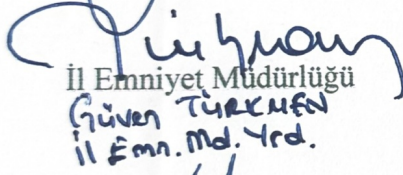 İl Emniyet Müdürlüğü
Güven TÜRKMEN
İl Emn. Md. Yrd.